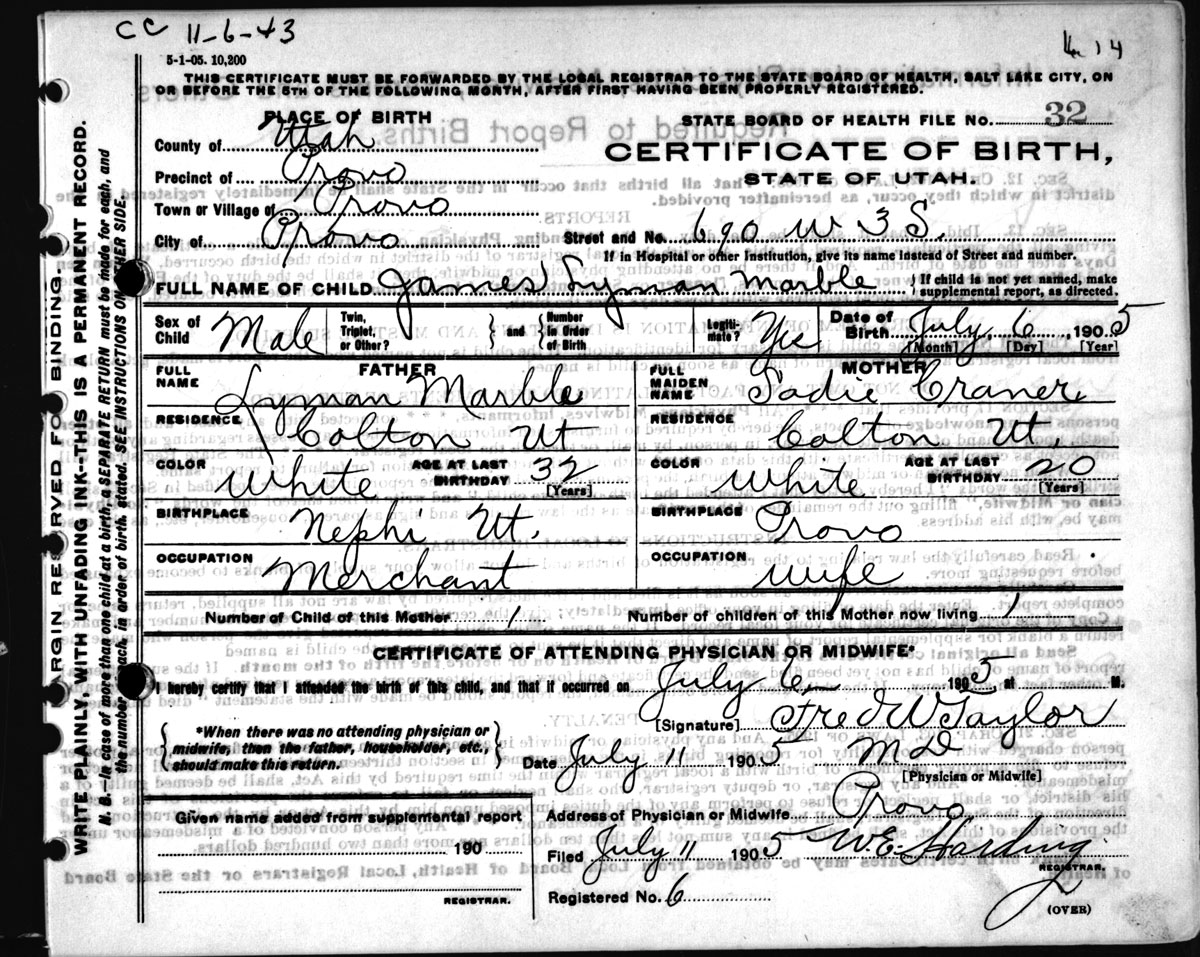 CC 11-6-43
14
5-1-05. 10,200
THIS CERTIFICATE MUST BE FORWARDED BY THE LOCAL REGISTRAR TO THE STATE BOARD OF HEALTH, SALT LAKE CITY, ON
OR BEFORE THE 5TH OF THE FOLLOWING MONTH, AFTER FIRST HAVING BEEN PROPERLY REGISTERED.
PLACE OF BIRTH
STATE BOARD OF HEALTH FILE NO. 32
County of Utah
CERTIFICATE OF BIRTH,
Precinct of Provo
STATE OF UTAH.
Town or Village of Provo
City of Provo Street and No. 690 W 3 S.
If in Hospital or other Institution, give its name instead of Street and number.
FULL NAME OF CHILD James Lyman Marble { If child is not yet named, make supplemental report, as directed.
Sex of Child Male Twin, Triplet, or Other? } and { Number in Order of Birth Legitimate? Yes Date of Birth July 6 1905
[Month] [Day] [Year]
FATHER MOTHER
FULL NAME Lyman Marble FULL MAIDEN NAME Sadie Craner
RESIDENCE Colton Ut RESIDENCE Colton Ut.
COLOR White AGE AT LAST BIRTHDAY 32 [Years] COLOR White AGE AT LAST BIRTHDAY 20 [Years]
BIRTHPLACE Nephi Ut. BIRTHPLACE Provo
OCCUPATION Merchant OCCUPATION Wife
Number of Child of this Mother 1 Number of children of this Mother now living 1
CERTIFICATE OF ATTENDING PHYSICIAN OR MIDWIFE*
I hereby certify that I attended the birth of this child, and that it occurred on July 6 1905 at M.
{ *When there was no attending physician or midwife, then the father, householder, etc., should make this return. }
[Signature] Fred W Taylor
Date July 11 1905 M D
[Physician or Midwife]
Given name added from supplemental report
Address of Physician or Midwife Provo
190
Filed July 11 1905 W.E. Harding
REGISTRAR.
REGISTRAR.
Registered No. 6
(OVER)
MARGIN RESERVED FOR BINDING
WRITE PLAINLY WITH UNFADING INK--THIS IS A PERMANENT RECORD.
N. B.--In case of more than one child at a birth, a SEPARATE RETURN must be made for each, and
the number of each, in order of birth, stated. SEE INSTRUCTIONS ON OTHER SIDE.